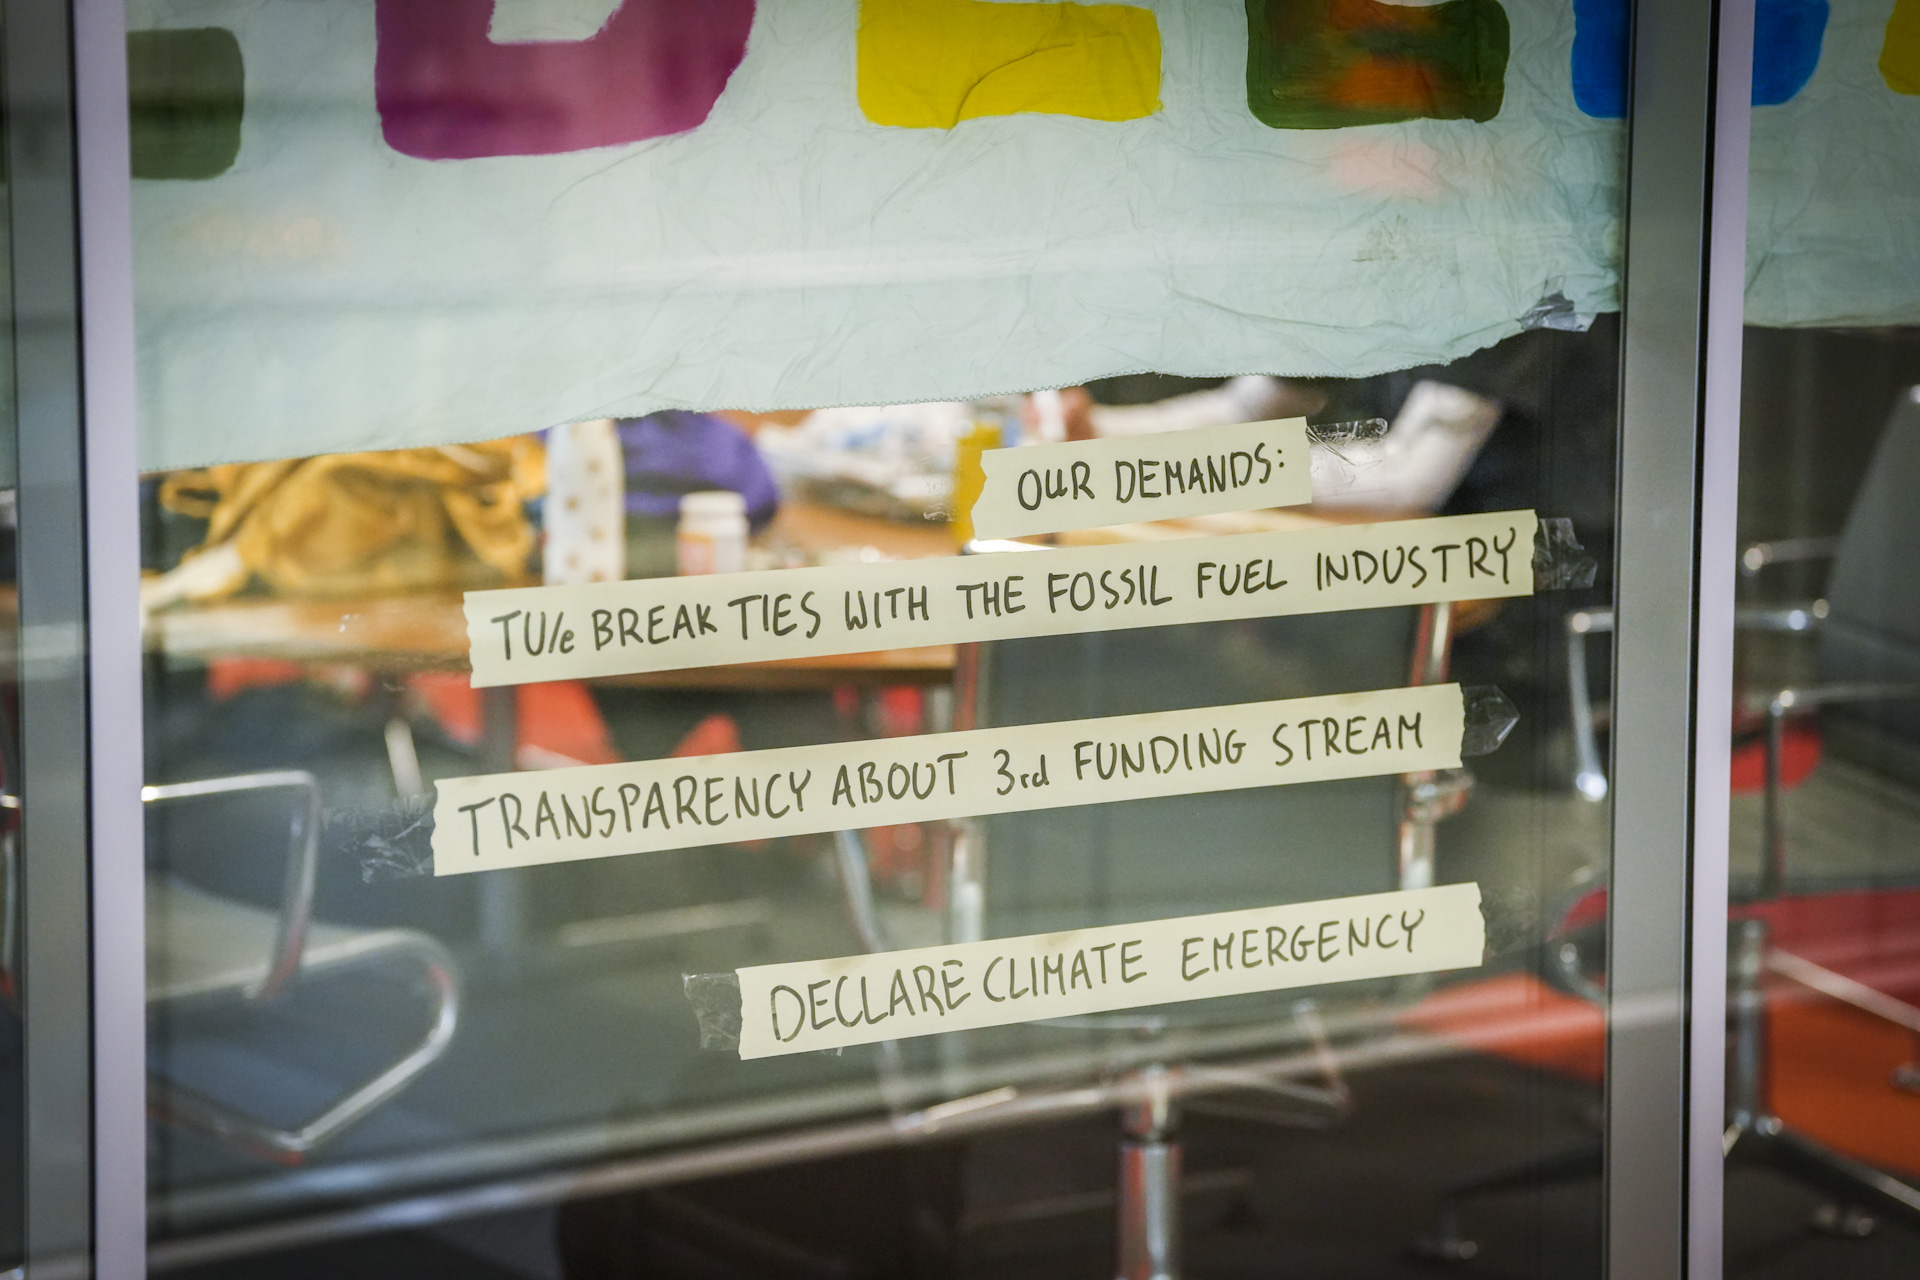 OUR DEMANDS:
TU/e BREAK TIES WITH THE FOSSIL FUEL INDUSTRY
TRANSPARENCY ABOUT 3rd FUNDING STREAM
DECLARE CLIMATE EMERGENCY